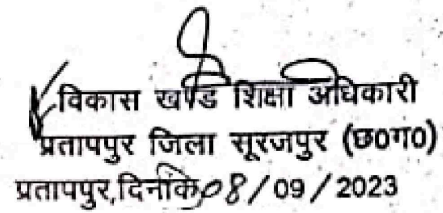 विकास खण्ड शिक्षा अधिकारी
प्रतापपुर जिला सूरजपुर (छ०ग०)
प्रतापपुर,दिनांक 08/09/2023